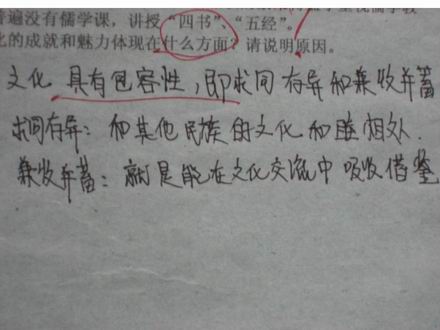 普遍没有儒学课，讲授“四书”、“五经”。
化的成就和魅力体现在什么方面？请说明原因。
文化 具有包容性，即求同存异和兼收并蓄
求同存异：和其他民族的文化和睦相处.
兼收并蓄：就是能在文化交流中吸收借鉴